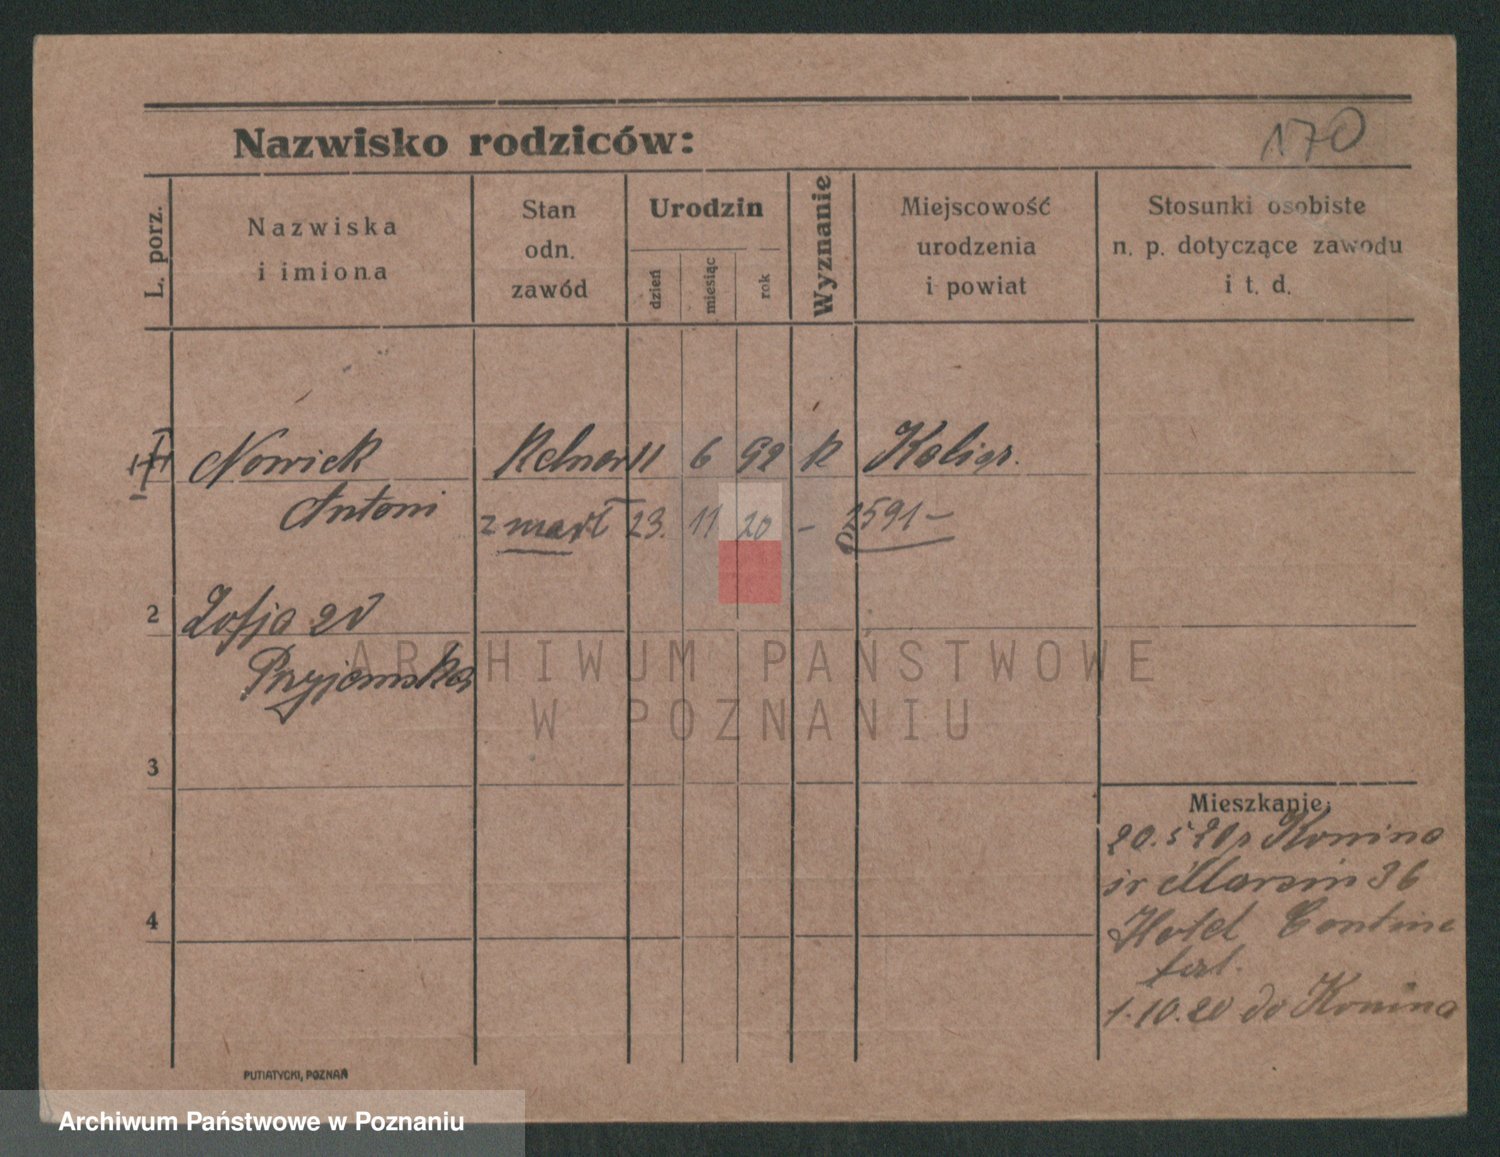 Nazwisko rodziców:
170
L. porz.
Nazwiska
i imiona
Stan
odn.
zawód
Urodzin
dzień
miesiąc
rok
Wyznanie
Miejscowość
urodzenia
i powiat
Stosunki osobiste
n. p. dotyczące zawodu
i t. d.
Nowick Kelner 11 6 92 k
Antoni zmarł 23. 11 20 – 1591 –
2 Zofja
3
4
Mieszkanie:
20.5 20 Konina
Marcin 36
Hotel Contine
1.10.20 do Konina
PUTIATYCKI, POZNAŃ
ARCHIWUM PAŃSTWOWE
W POZNANIU
Archiwum Państwowe w Poznaniu